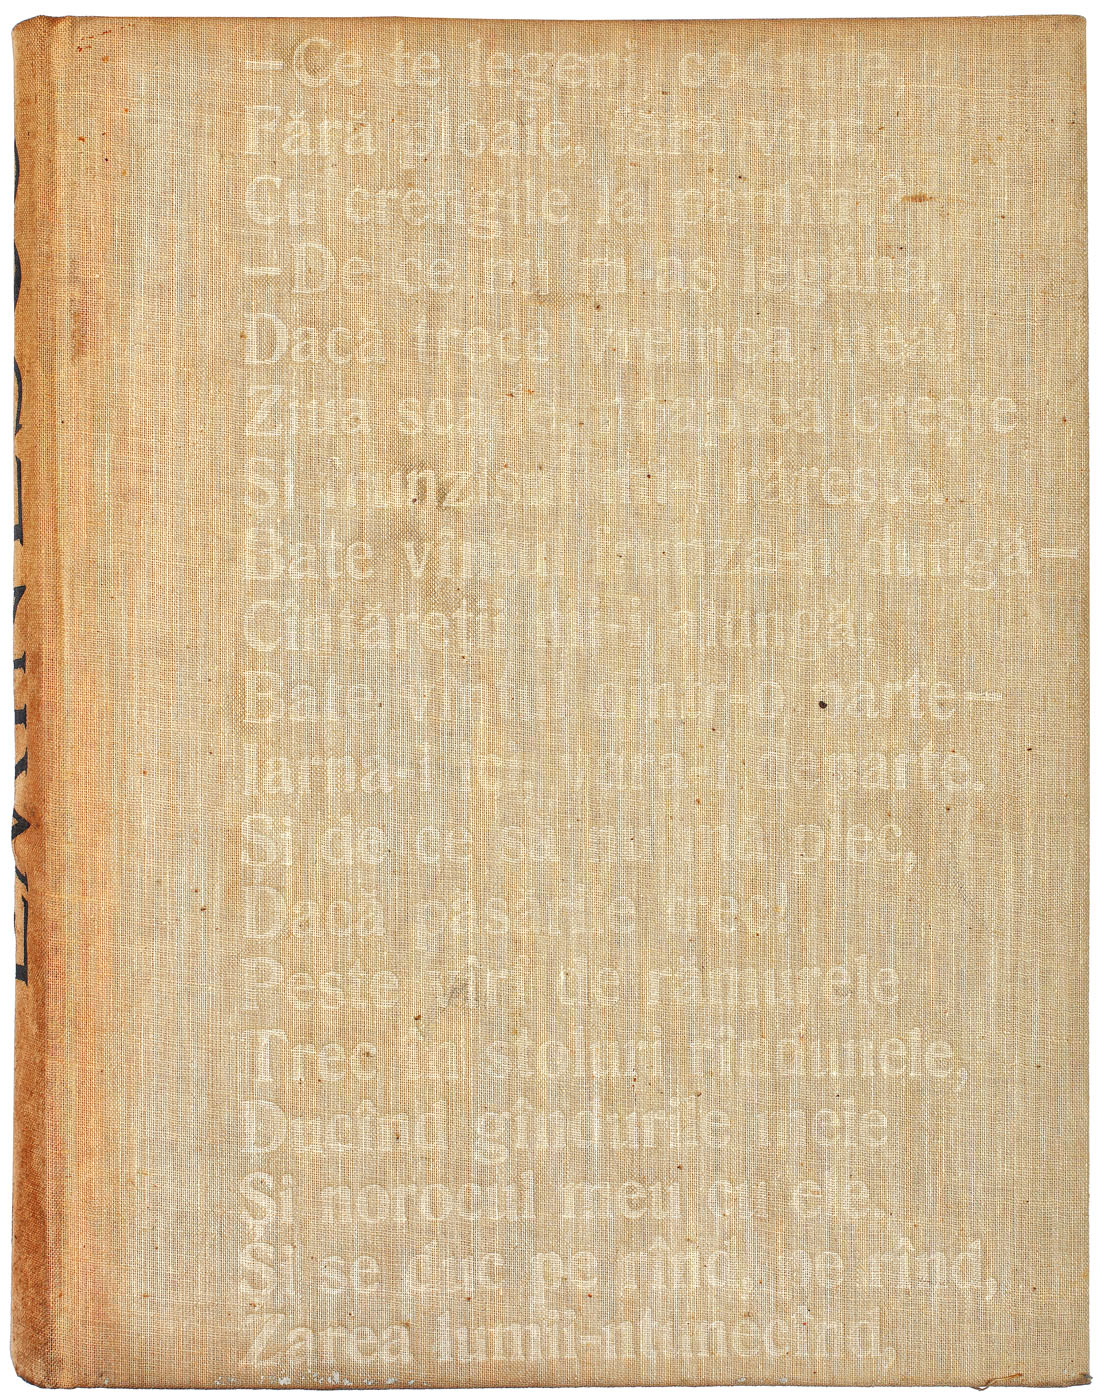 – Ce te legeni, codrule,
Fără ploaie, fără vînt,
Cu crengile la pămînt?
– De ce nu m-aș legăna,
Dacă trece vremea mea!
Ziua scade, noaptea crește
Și frunzișul mi-l rărește.
Bate vîntul frunza-n dungă –
Cîntăreții mi-i alungă;
Bate vîntul dintr-o parte –
Iarna-i ici, vara-i departe.
Și de ce să nu mă plec,
Dacă păsările trec!
Peste vîrf de rămurele
Trec în stoluri rîndunele,
Ducînd gîndurile mele
Și norocul meu cu ele.
Și se duc pe rînd, pe rînd,
Zarea lumii-ntunecînd,